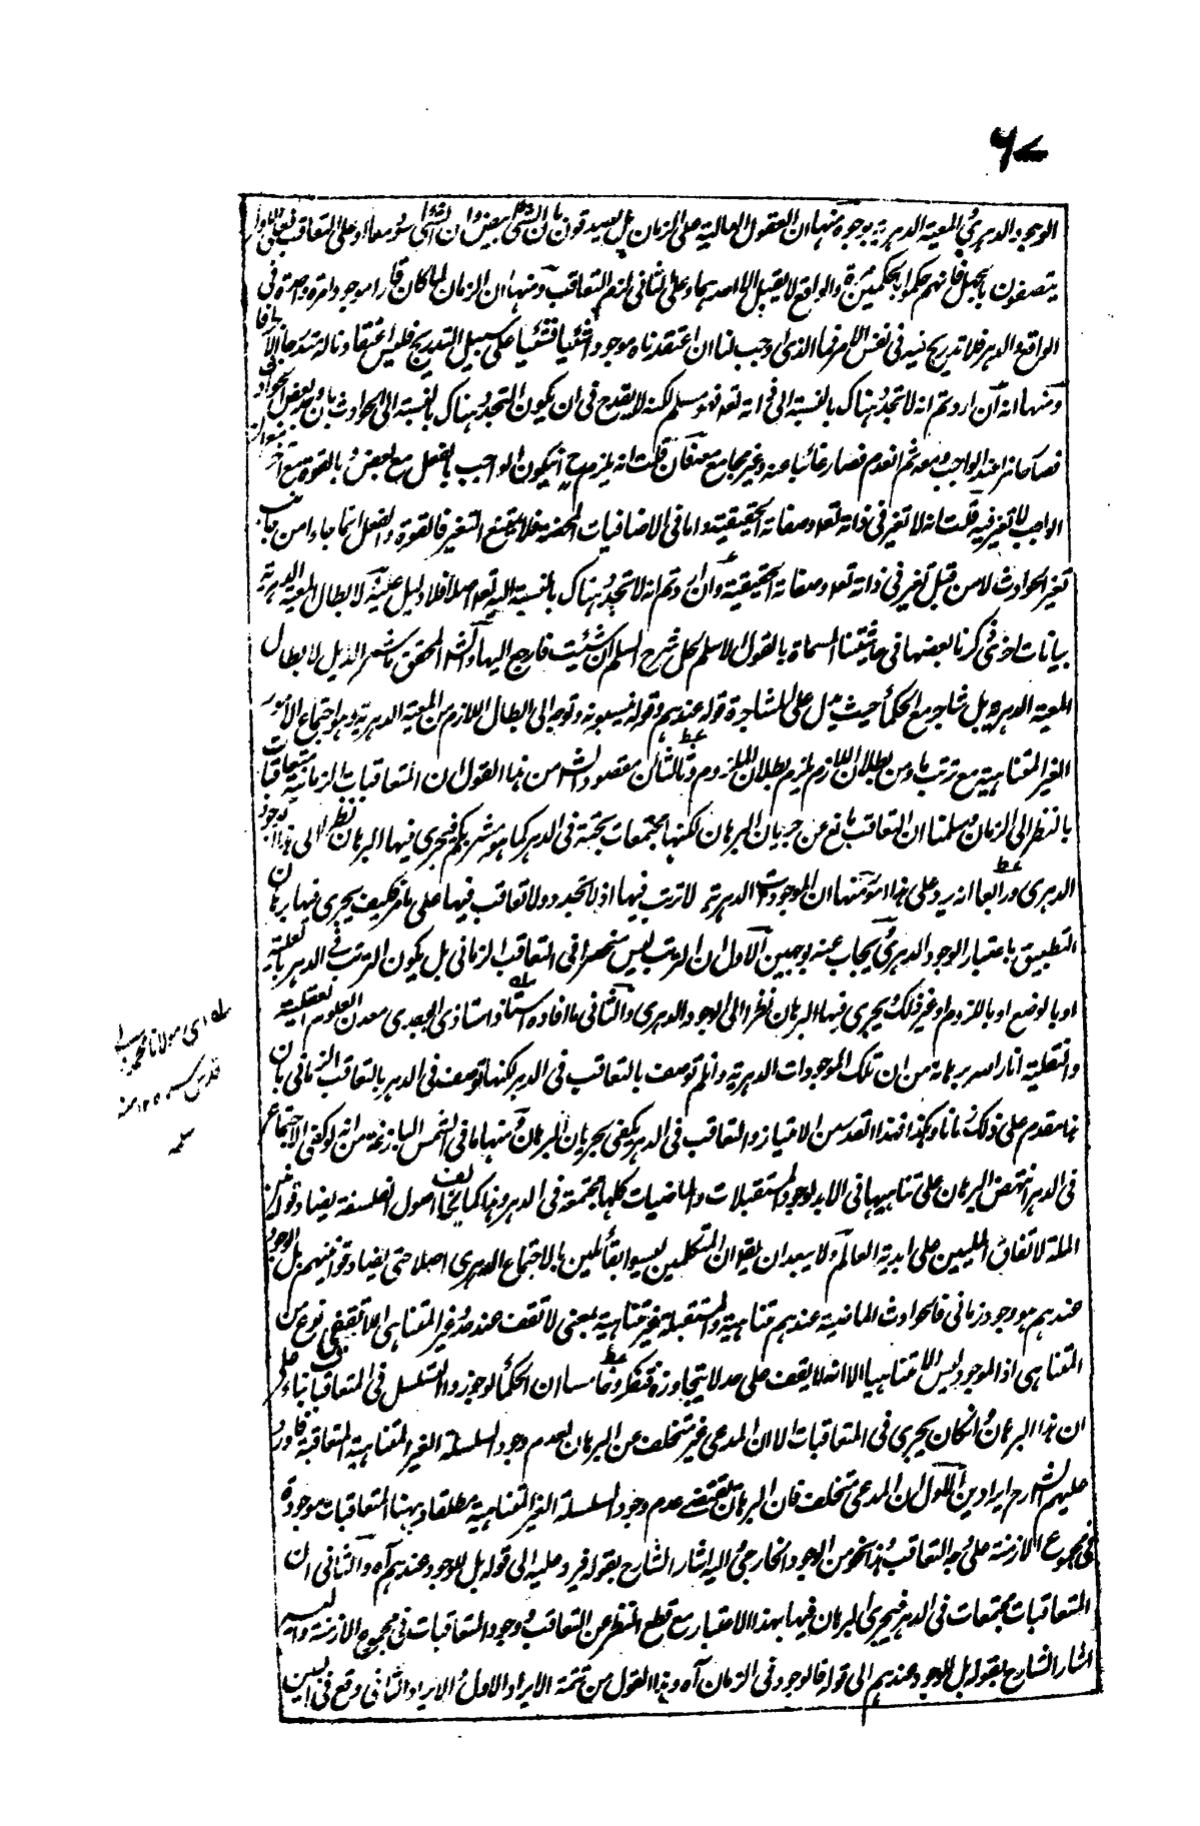 ٦٧
الوجود الدهري والمعية الدهرية بوجوه منها ان العقول العالية على الزمان بل يصدقون بان الشئ بعض وان الشئ
يتصفون بالجهل فانهم حكموا بحكمين والواقع لا يقبل الا احدهما وعلى الثاني لزم التعاقب ومنها ان الزمان لما كان قارا موجودا مرة واحدة في
الواقع والدهر فلا تدريج فيه في نفس الامر فما الذي اوجب لنا ان اعتقدناه موجودا شيئا فشيئا على سبيل التدريج فليس اعتقادنا له تدريجا
ومنها انه ان اردتم انه لا تجدد هناك بالنسبة الى ذاته تعالى فهو مسلم لكنه لا يقدح في ان يكون التجدد هناك بالنسبة الى الحوادث بان يوجد بعض الحوادث
فصار حاضرا عند الواجب ومعه ثم انعدم فصار غائبا عنه وغير مجامع معه فان قلت انه يلزم ح ان يكون الواجب بالفعل مع بعض وبالقوة مع آخر
الواجب لا تغير فيه قلت انه لا تغير في ذاته تعالى وصفاته الحقيقية واما في الاضافيات المحضة فلا يمتنع التغير فالقوة والفعل انما جاءا من جانب
تغير الحوادث لا من قبل تغير في ذاته تعالى وصفاته الحقيقية وان اردتم انه لا تجدد هناك بالنسبة اليه تعالى اصلا فلا دليل عليه ولابطال المعية الدهرية
بيانات اخرى ذكرنا بعضها في حاشيتنا المسماة بالقول الاسلم لحل شرح السلم ان شئت فارجع اليها والشارح المحقق ما شمر الذيل لابطال
المعية الدهرية بل شاجر مع الحكماء حيث يدل على المشاجرة قوله عندهم وقوله فيسمونه وتوجه الى ابطال اللازم من المعية الدهرية وهو اجتماع الامور
الغير المتناهية مع ترتبها ومن بطلان اللازم يلزم بطلان الملزوم وثالثا ان مقصود الشارح من هذا القول ان المتعاقبات الزمانية متعاقبات
بالنظر الى الزمان وسلمنا ان التعاقب مانع عن جريان البرهان لكنها مجتمعات بحتة في الدهر كما هو مشربكم فيجري فيها البرهان نظرا الى الوجود
الدهري ورابعا انه يرد على هذا امور منها ان الموجودات الدهرية لا ترتب فيها اذ لا تجدد ولا تعاقب فيها على ما مر فكيف يجري فيها برهان
التطبيق باعتبار الوجود الدهري ويجاب عنه بوجهين الاول ان الترتب ليس منحصرا في التعاقب الزماني بل يكون الترتب في الدهر بالعلية
او بالوضع او باللزوم او غير ذلك فيجري فيها البرهان نظرا الى الوجود الدهري والثاني ما افاده استاذ استاذي جدي معدن العلوم العقلية
والنقلية انار الله برهانه من ان تلك الموجودات الدهرية وان لم توصف بالتعاقب في الدهر لكنها توصف في الدهر بالتعاقب الزماني بان
هذا مقدم على ذلك زمانا وهكذا فهذا القدر من الامتياز والتعاقب في الدهر يكفي لجريان البرهان ومنها ما في الشمس البازغة من انه لو كفى الاجتماع
في الدهر انتهض البرهان على تناهيها في الابد لوجود المستقبلات والماضيات كلها مجتمعة في الدهر وهذا كما يخالف اصول الفلسفة يضاد قوانين
الملة لاتفاق المليين على ابدية العالم ولا يبعد ان يقول ان المتكلمين ليسوا بقائلين بالاجتماع الدهري اصلا حتى يضاد قوانينهم بل الوجود
عندهم هو وجود زماني فالحوادث الماضية عندهم متناهية والمستقبلة غير متناهية بمعنى لا تقف عند حد وغير المتناهي اللاتقفي نوع من
المتناهي اذ الموجود ليس الا متناهيا الا انه لا يقف على حد لا يتجاوزه فتفكر وخامسا ان الحكماء لو جوزوا التسلسل في المتعاقبات بناء على
ان هذا البرهان وان كان يجري في المتعاقبات الا ان المدعى غير متخلف عن البرهان لعدم وجود السلسلة الغير المتناهية المتعاقبة فاورد
عليهم الشارح ايرادين الاول ان المدعى متخلف فان البرهان يقتضي عدم وجود السلسلة الغير المتناهية مطلقا وههنا المتعاقبات موجودة
في مجموع الازمنة على وجه التعاقب وهذا نحو من الوجود الخارجي واليه اشار الشارح بقوله فيرد عليه الى قوله بل للوجود عندهم آه والثاني ان
المتعاقبات مجتمعات في الدهر فيجري البرهان فيها بهذا الاعتبار مع قطع النظر عن التعاقب ووجود المتعاقبات في مجموع الازمنة واليه
اشار الشارح بقوله بل للوجود عندهم الى قوله فالوجود في الزمان آه وهذا القول من تتمة الايراد الاول والايراد الثاني وقع في البين
اي مولانا محمد
قدس سره ١٢ منه